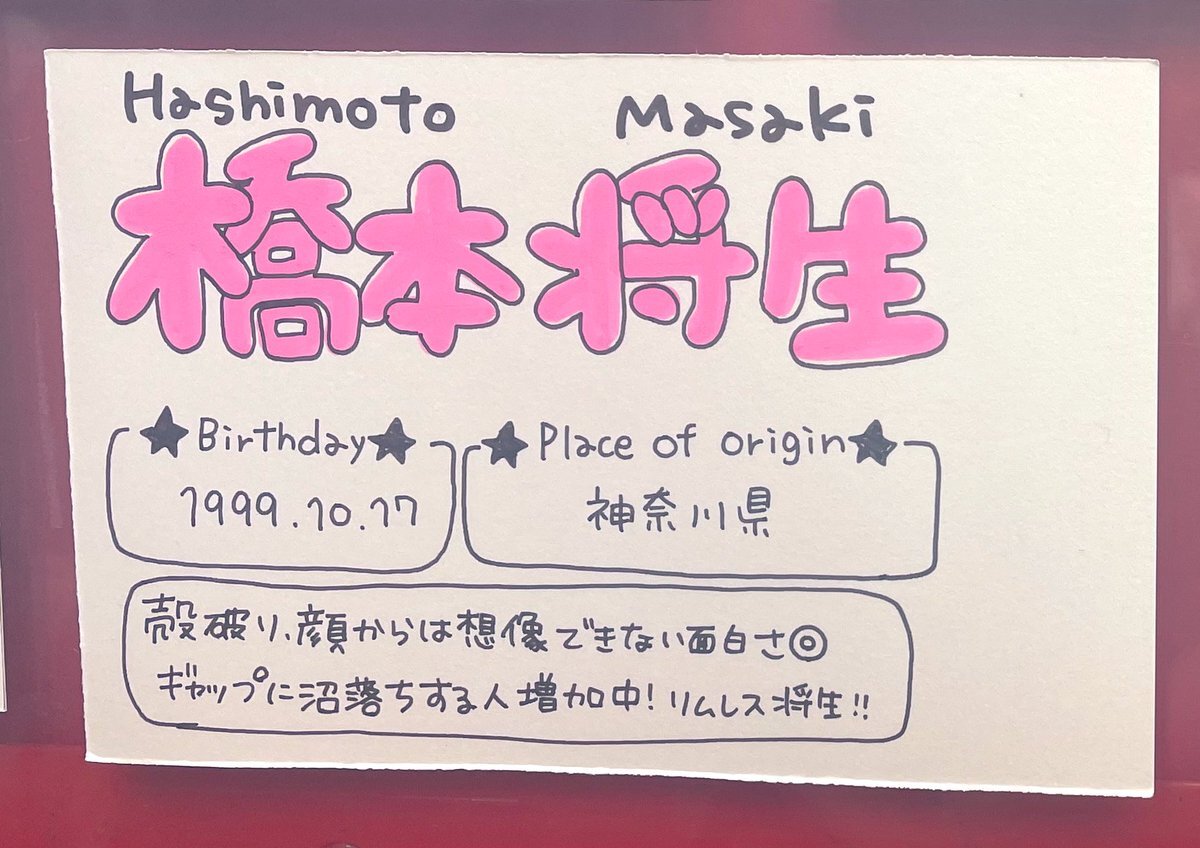 Hashimoto Masaki
橋本将生
★Birthday★
1999.10.17
★Place of origin★
神奈川県
殻破り、顔からは想像できない面白さ◎
ギャップに沼落ちする人増加中！リムレス将生!!